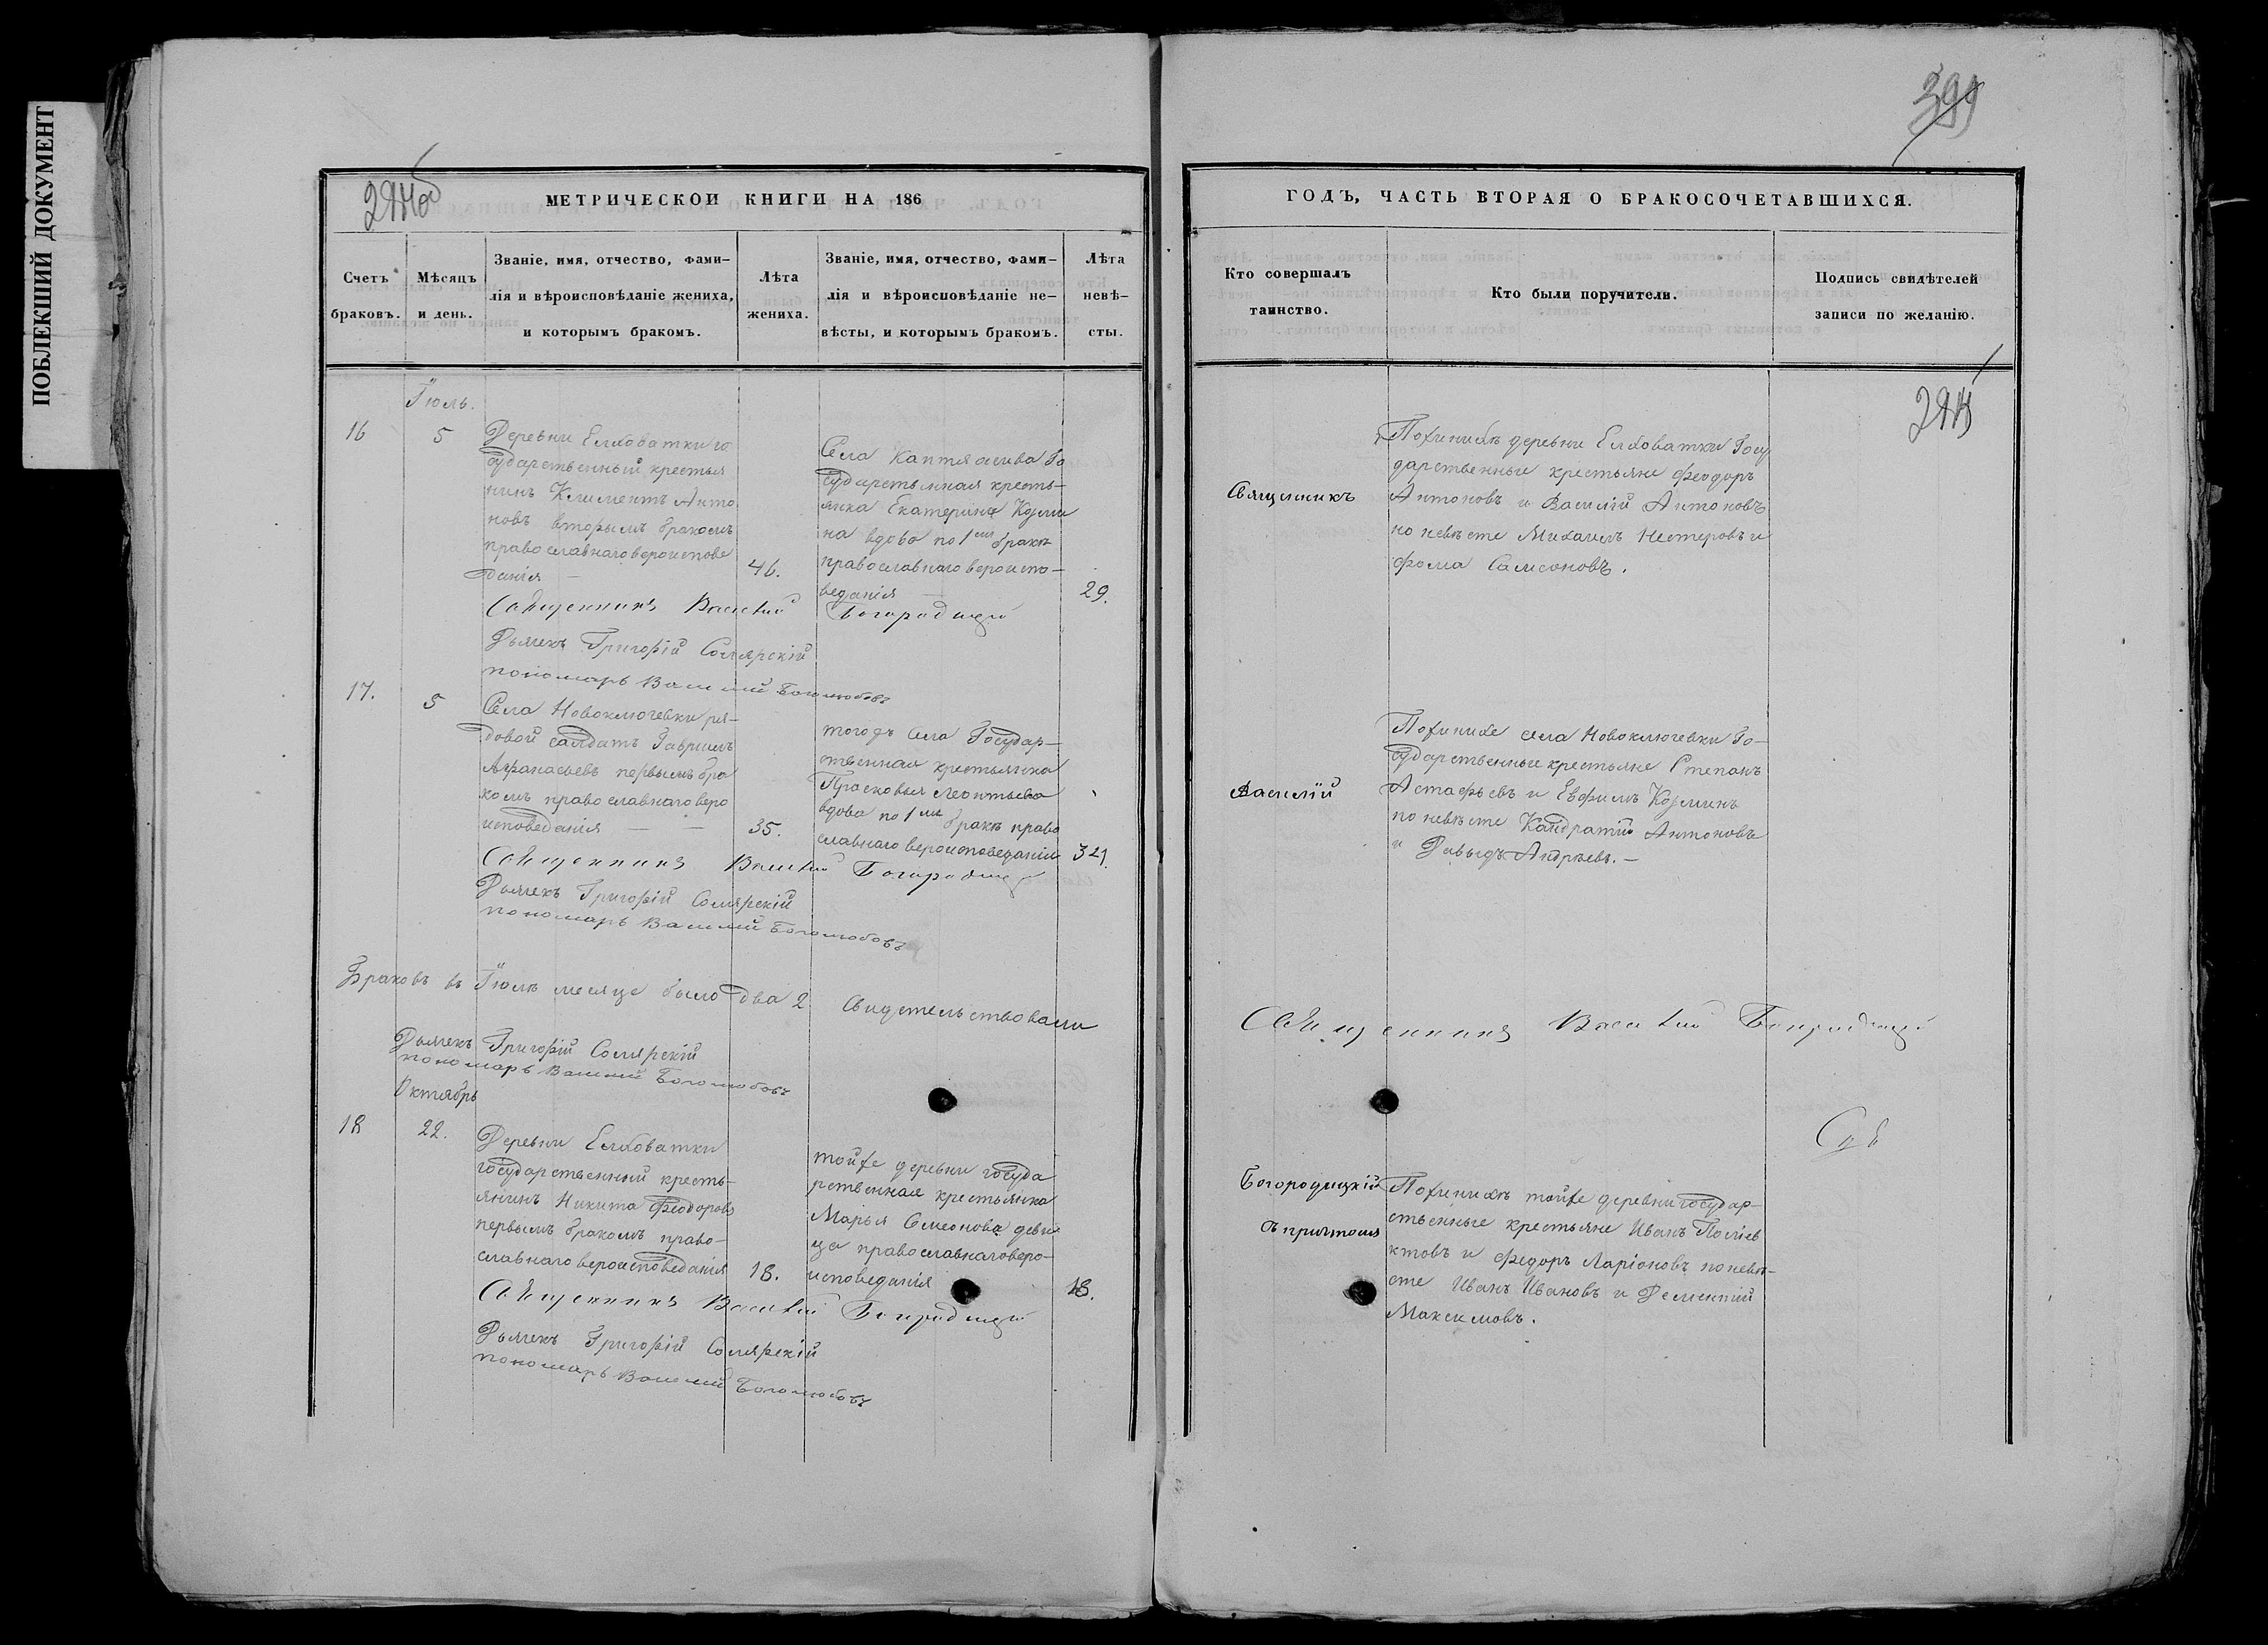 ПОБЛЕКШИЙ ДОКУМЕНТ
399
МЕТРИЧЕСКОЙ КНИГИ НА 186
Счетъ браковъ.
Мѣсяцъ и день.
Званіе, имя, отчество, фами-
лія и вѣроисповѣданіе жениха,
и которымъ бракомъ.
Лѣта жениха.
Званіе, имя, отчество, фами-
лія и вѣроисповѣданіе не-
вѣсты, и которымъ бракомъ.
Лѣта невѣ-
сты.
Іюль.
16
5
Деревни Елховатки го
сударственный крестья
нинъ Климентъ Анто
новъ вторымъ бракомъ
православнаго вероиспове
данія —
46.
Села Каптяшива Го
сударственная кресть-
янка Екатерина Козми
на вдова по 1мъ бракѣ
православнаго вероиспо-
веданія —
29.
Священникъ Василій Богородицкій
Дьячекъ Григорій Солярскій
пономарь Василий Боголюбовъ
17.
5
Села Новоключевки ря-
довой салдатъ Гавриилъ
Афанасьевъ первымъ бра
комъ православнаго веро
исповеданія — —
35.
тогожъ села Государ-
ственная крестьянка
Прасковья Леонтьева
вдова по 1мъ бракѣ право
славнаго вероисповеданія
Священникъ Василій Богородицкій
Дьячекъ Григорій Солярскій
пономарь Василий Боголюбовъ
Браковъ въ Іюлѣ месяце было два 2 Свидетельствовали
Дьячекъ Григорій Солярскій
пономарь Василий Боголюбовъ
Октябрь
18
22.
Деревни Елховатки
государственный кресть-
янинъ Никита Феодоровъ
первымъ бракомъ право-
славнаго вероисповеданія
18.
тойже деревни госуда
рственная крестьянка
Марья Симеонова деви
ца православнаго веро-
исповеданія
18.
Священникъ Василій Богородицкій
Дьячекъ Григорій Солярскій
пономарь Василий Боголюбовъ
ГОДЪ, ЧАСТЬ ВТОРАЯ О БРАКОСОЧЕТАВШИХСЯ.
Кто совершалъ
таинство.
Кто были поручители.
Подпись свидѣтелей
записи по желанію.
Священникъ
Пожинихѣ деревни Елховатки Госу
дарственные крестьяне Феодоръ
Антоновъ и Василій Антоновъ
по невѣсте Михаилъ Нестеровъ и
Фома Самсоновъ.
Василій
Пожинихе села Новоключевки Го-
сударственные крестьяне Степанъ
Астафьевъ и Евфимъ Козминъ
по невѣсте Кандратій Антоновъ
и Давыдъ Андрѣевъ. —
Священникъ Василій Богородицкій
Богородицкій
съ причтомъ
Пожинихѣ тойже деревни государ-
ственные крестьяне Иванъ Поліев
ктовъ и Федоръ Ларіоновъ по невѣ-
сте Иванъ Ивановъ и Дементий
Максимовъ.